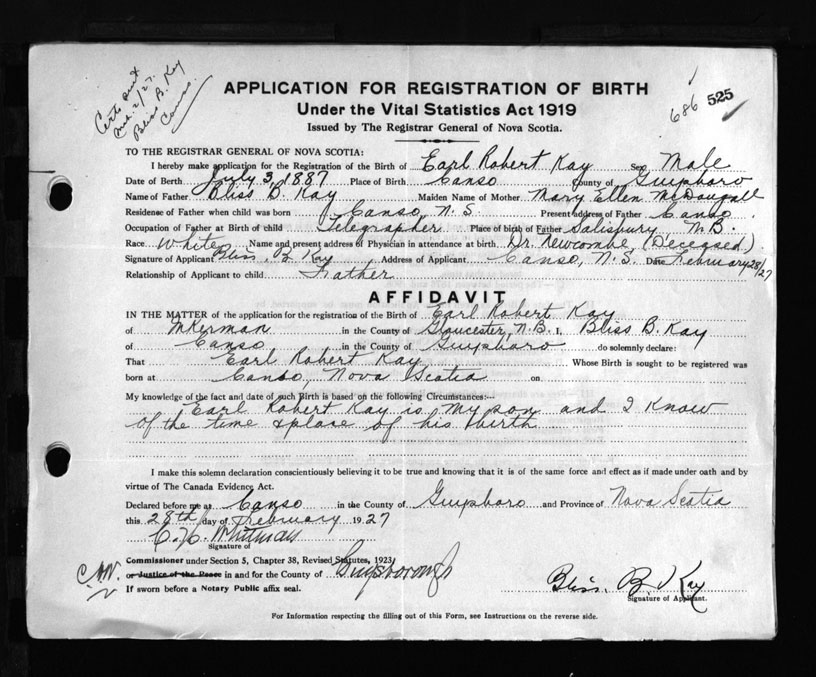 Certs sent
Mch. 2/27.
Bliss B. Kay
Canso.
686 525
APPLICATION FOR REGISTRATION OF BIRTH
Under the Vital Statistics Act 1919
Issued by The Registrar General of Nova Scotia.
TO THE REGISTRAR GENERAL OF NOVA SCOTIA:
I hereby make application for the Registration of the Birth of Earl Robert Kay Sex Male
Date of Birth July 3, 1887 Place of Birth Canso County of Guysboro
Name of Father Bliss B. Kay Maiden Name of Mother Mary Ellen McDougall
Residense of Father when child was born Canso, N.S. Present address of Father Canso
Occupation of Father at Birth of child Telegrapher Place of birth of Father Salisbury, N.B.
Race White Name and present address of Physician in attendance at birth Dr. Newcombe, (Deceased)
Signature of Applicant Bliss B Kay Address of Applicant Canso, N.S. Date February 28/27
Relationship of Applicant to child Father
AFFIDAVIT
IN THE MATTER of the application for the registration of the Birth of Earl Robert Kay
of McKerman in the County of Gloucester, N.B. I, Bliss B. Kay
of Canso in the County of Guysboro do solemnly declare:
That Earl Robert Kay Whose Birth is sought to be registered was
born at Canso, Nova Scotia on
My knowledge of the fact and date of such Birth is based on the following Circumstances:—
Earl Robert Kay is my son and I know
of the time & place of his birth
I make this solemn declaration conscientiously believing it to be true and knowing that it is of the same force and effect as if made under oath and by
virtue of The Canada Evidence Act.
Declared before me at Canso in the County of Guysboro and Province of Nova Scotia
this 28th day of February 1927
C. H. Whitman
Signature of
Commissioner under Section 5, Chapter 38, Revised Statutes, 1923
or Justice of the Peace in and for the County of Guysborough
C.H.W.
If sworn before a Notary Public affix seal.
Bliss. B. Kay
Signature of Applicant.
For Information respecting the filling out of this Form, see Instructions on the reverse side.